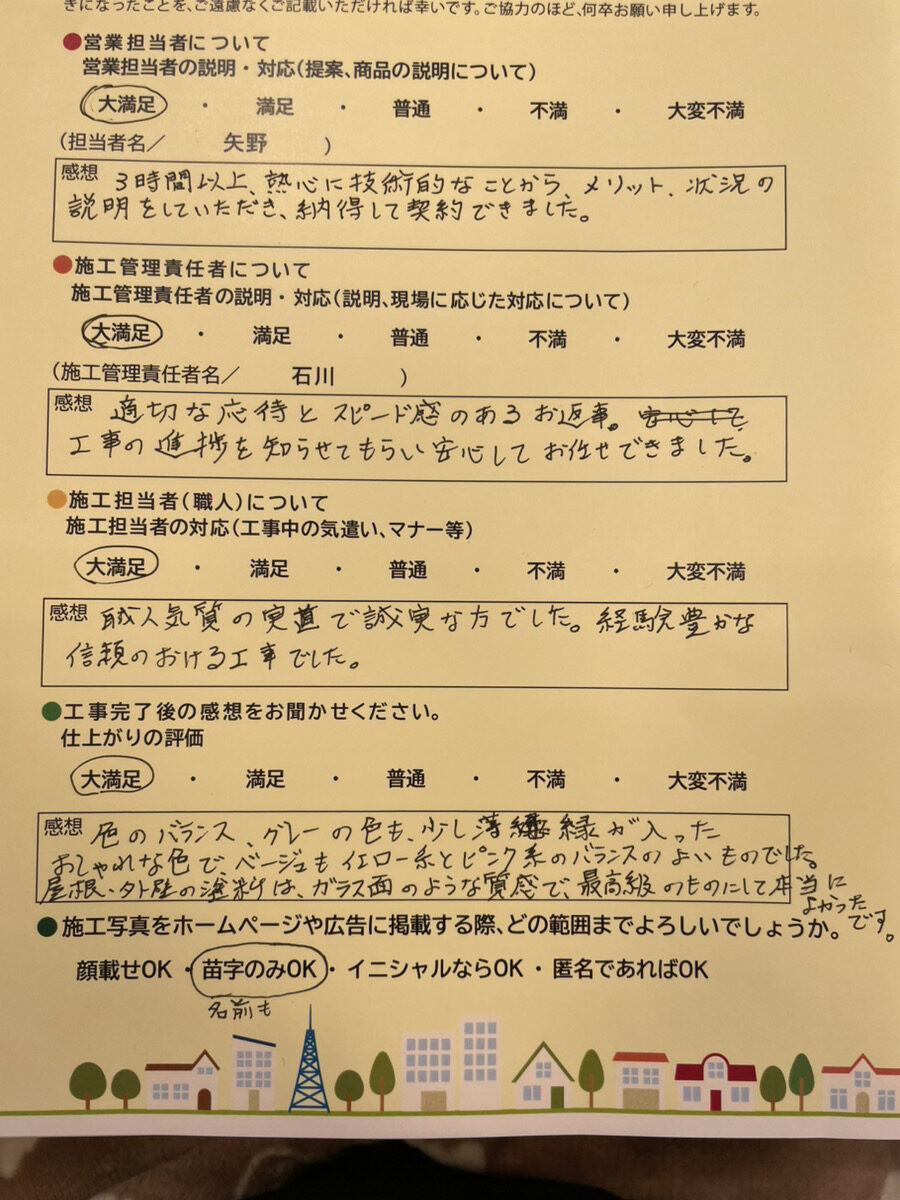 きになったことを、ご遠慮なくご記載いただければ幸いです。ご協力のほど、何卒お願い申し上げます。
●営業担当者について
営業担当者の説明・対応(提案、商品の説明について)
大満足 ・ 満足 ・ 普通 ・ 不満 ・ 大変不満
(担当者名/ 矢野 )
感想 3時間以上、熱心に技術的なことから、メリット、状況の
説明をしていただき、納得して契約できました。
●施工管理責任者について
施工管理責任者の説明・対応(説明、現場に応じた対応について)
大満足 ・ 満足 ・ 普通 ・ 不満 ・ 大変不満
(施工管理責任者名/ 石川 )
感想 適切な応待とスピード感のあるお返事。安心して
工事の進捗を知らせてもらい安心してお任せできました。
●施工担当者(職人)について
施工担当者の対応(工事中の気遣い、マナー等)
大満足 ・ 満足 ・ 普通 ・ 不満 ・ 大変不満
感想 職人気質の実直で誠実な方でした。経験豊かな
信頼のおける工事でした。
●工事完了後の感想をお聞かせください。
仕上がりの評価
大満足 ・ 満足 ・ 普通 ・ 不満 ・ 大変不満
感想 色のバランス、グレーの色も、少し薄緑が入った
おしゃれな色で、ベージュもイエロー系とピンク系のバランスのよいものでした。
屋根・外壁の塗料は、ガラス面のような質感で、最高級のものにして本当に
よかった
です。
●施工写真をホームページや広告に掲載する際、どの範囲までよろしいでしょうか。
顔載せOK ・ 苗字のみOK ・ イニシャルならOK ・ 匿名であればOK
名前も